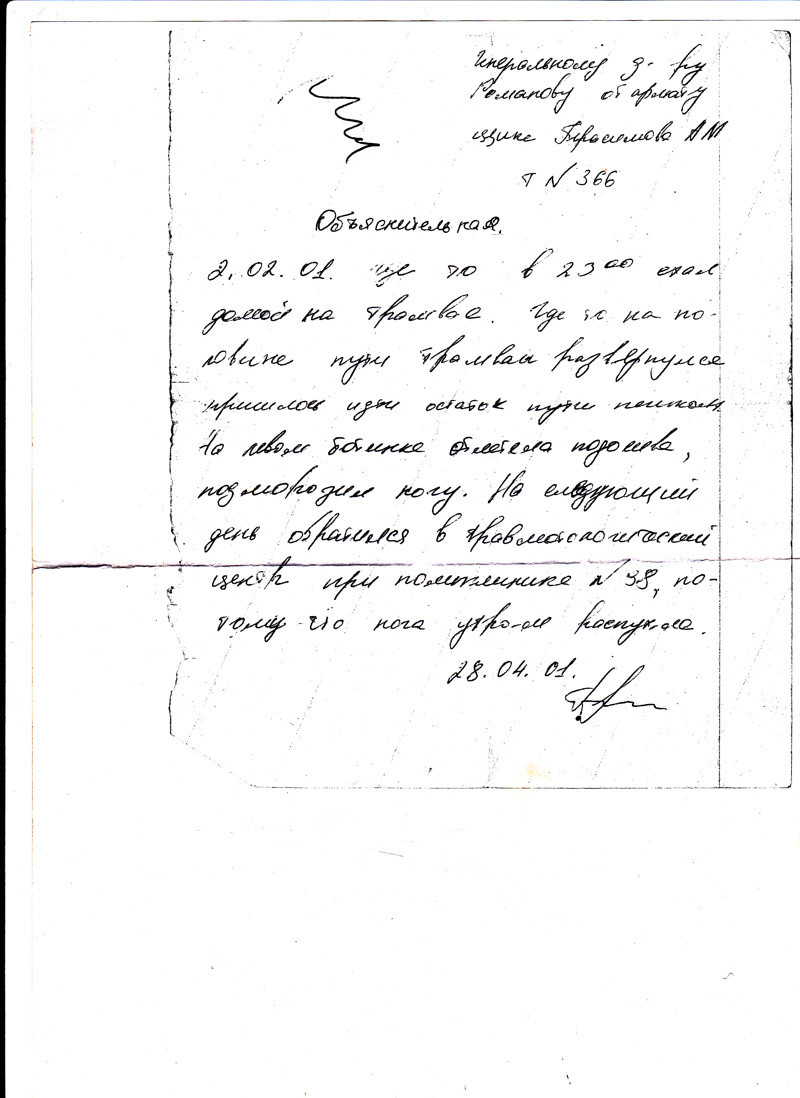 Генеральному д-ру
Романову от армату
щика Герасимова АМ
т N 366
Объяснительная.
2.02.01. где то в 23 00 ехал
домой на трамвае. Где то на по-
ловине пути трамвай развернулся
пришлось идти остаток пути пешком
На левом ботинке отлетела подошва,
подморозил ногу. На следующий
день обратился в травматологический
центр при поликлинике N 38, по-
тому что нога утром распухла.
28.04.01.